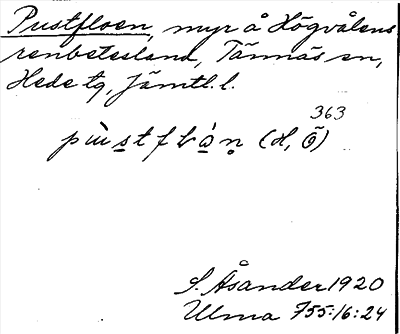 Pustfloen, myr å Högvålens
renbetesland, Tännäs sn,
Hede tg, Jämtl. l.
363
(H, Õ)
S. Åsander 1920
Ulma 755:16:24